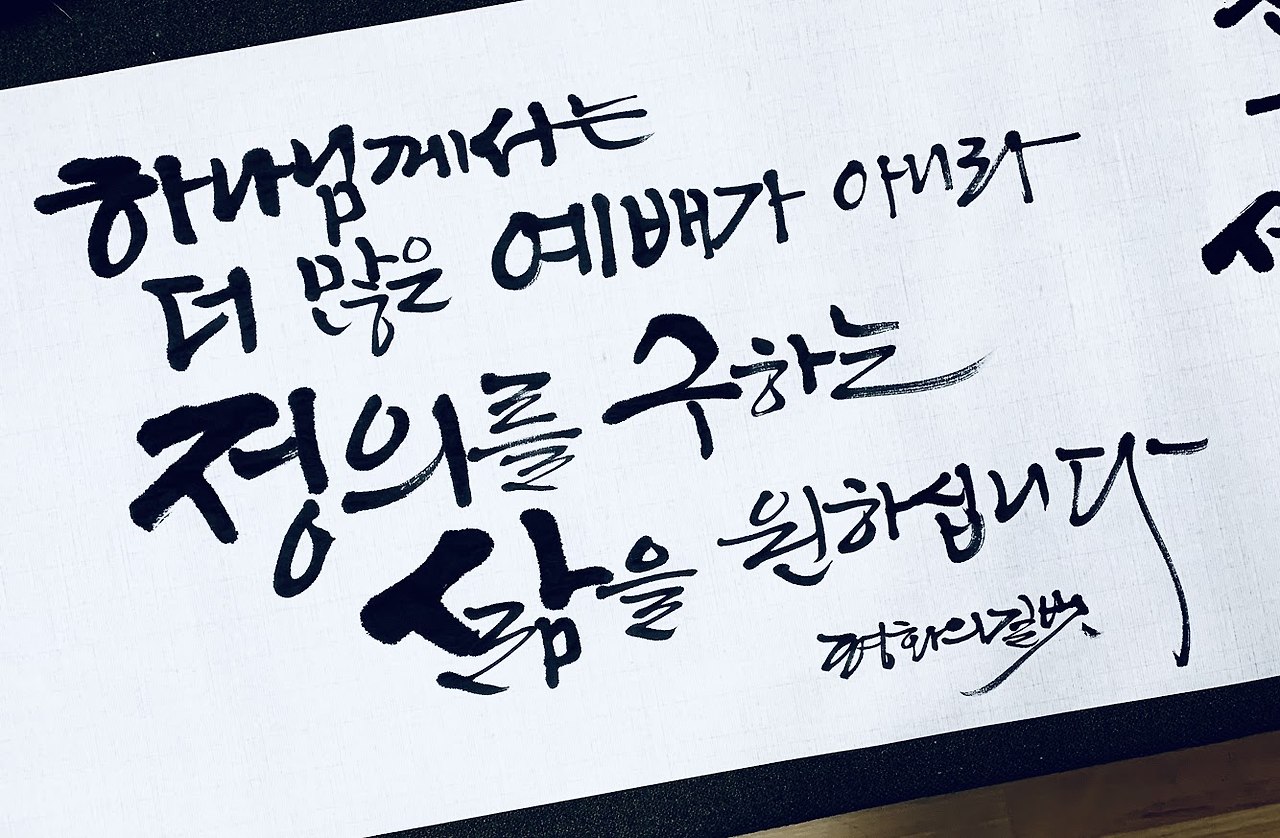 하나님께서는
더 많은 예배가 아니라
정의를 구하는
삶을 원하십니다
평화의길벗